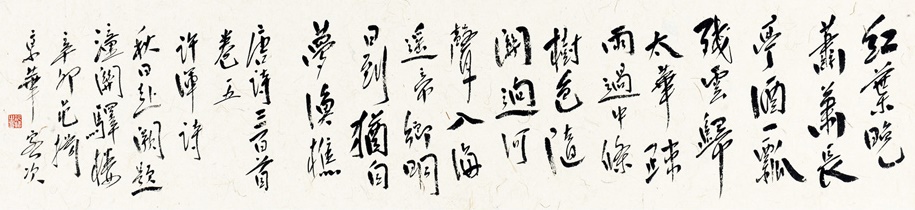 紅葉晚
蕭蕭長
亭酒一瓢
残雲歸
太華疎
雨過中條
樹色隨
關迥河
聲入海
遥帝鄉明
日到猶自
夢漁樵
唐诗三百首
卷五
许渾詩
秋日赴阙题
潼關驛樓
辛卯范揚
京華客次